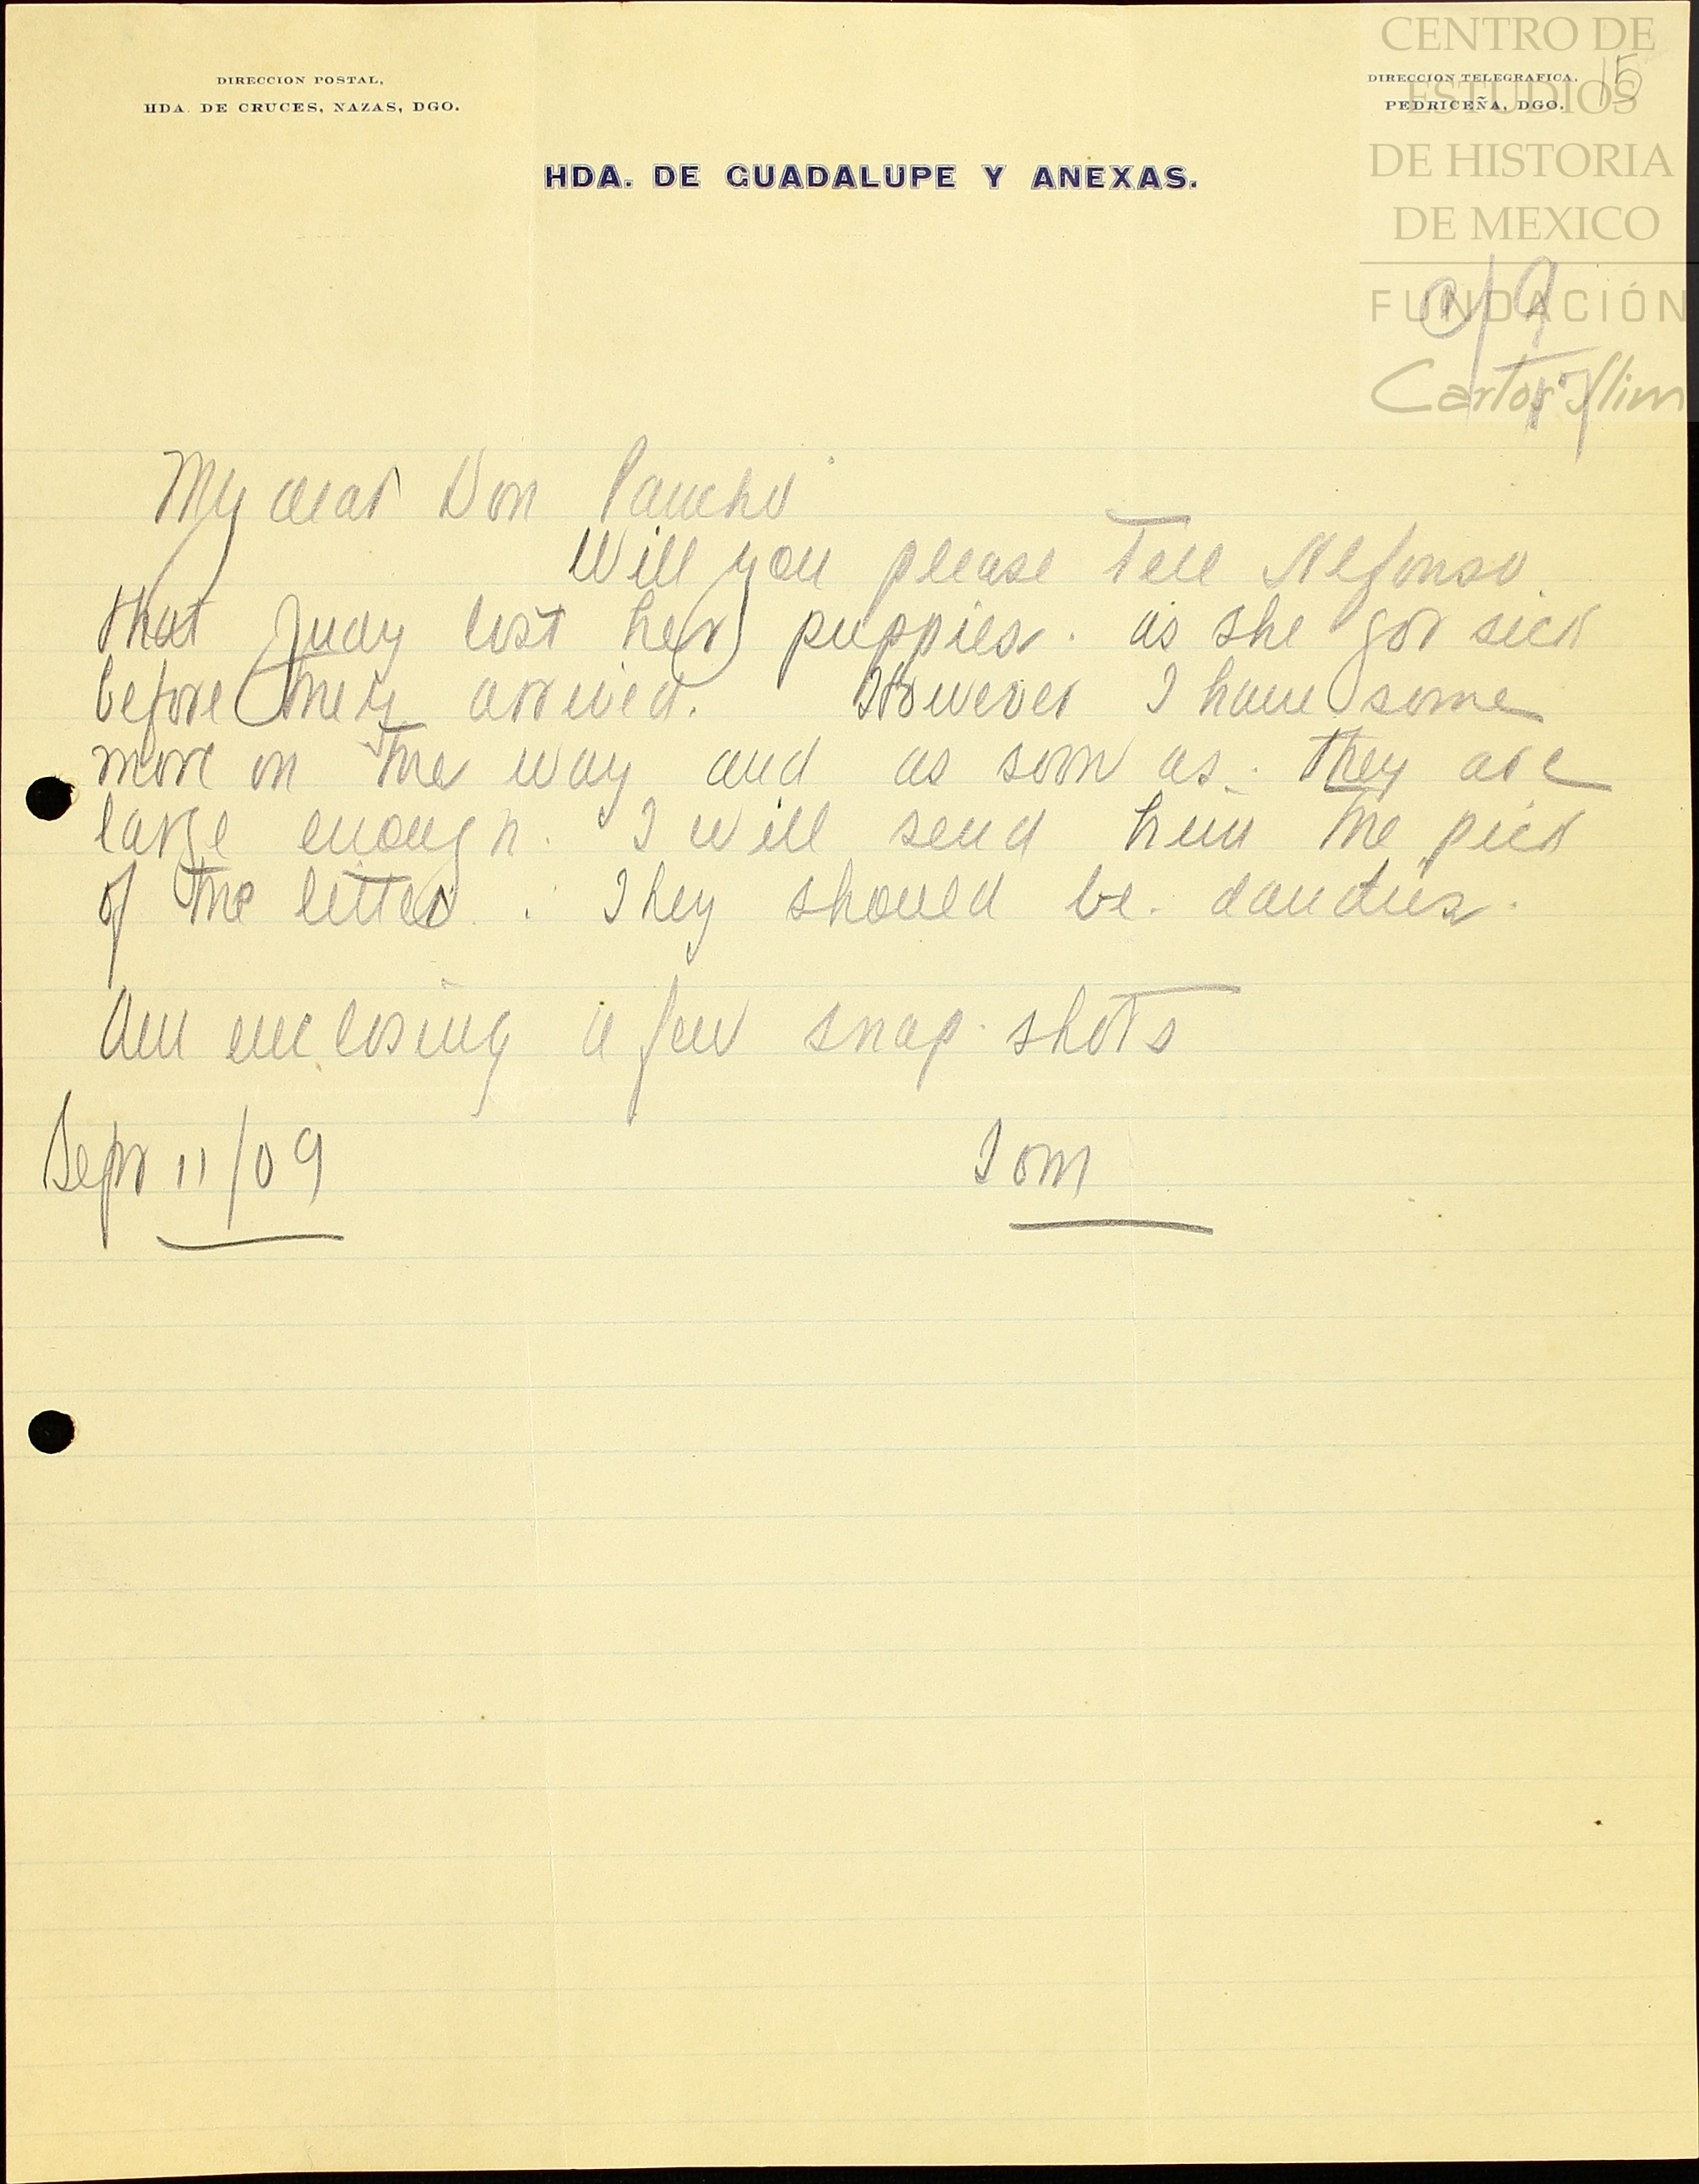 CENTRO DE
ESTUDIOS
DE HISTORIA
DE MEXICO
FUNDACIÓN
Carlos Slim
DIRECCION POSTAL,
HDA. DE CRUCES, NAZAS, DGO.
DIRECCION TELEGRAFICA.
PEDRICEÑA, DGO.
15
HDA. DE GUADALUPE Y ANEXAS.
My dear Don Pancho
Will you please tell Alfonso
that Judy lost her puppies. as she got sick
before they arrived. However I have some
more on the way and as soon as. they are
large enough. I will send him the pick
of the litter. They should be. dandies.
Am enclosing a few snap-shots
Sept 11/09
Tom